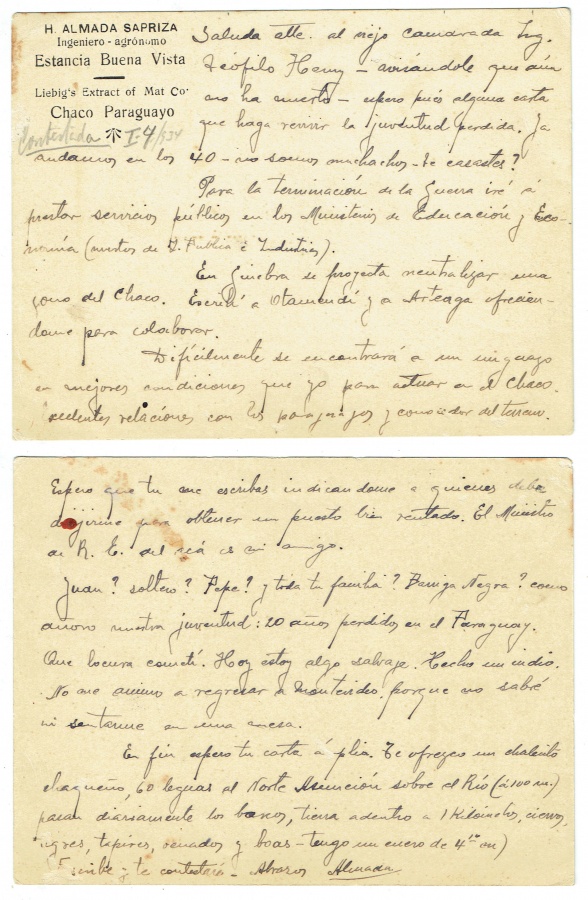 H. ALMADA SAPRIZA
Ingeniero - agrónomo
Estancia Buena Vista
Liebig's Extract of Mat Co.
Chaco Paraguayo
Contestada I-4/934
Saluda atte. al viejo camarada Ing.
Teófilo Henry - avisándole que aún
no ha muerto - espero pues alguna carta
que haga revivir la juventud perdida. Ya
andamos en los 40 - no somos muchachos - te casastes?
Para la terminación de la Guerra iré á
prestar servicios públicos en los Ministerios de Educación y Eco-
nomía (mixtos de I. Publica é Industrias).
En Ginebra se proyecta neutralizar una
zona del Chaco. Escribí a Otamendi y a Arteaga ofrecien-
dome para colaborar.
Difícilmente se encontrará a un uruguayo
en mejores condiciones que yo para actuar en el Chaco.
relaciones con los paraguayos y conocedor del terreno.
Espero que tu me escribas indicandome a quienes deba
dirijirme para obtener un puesto bien rentado. El Ministro
de R. E. del es mi amigo.
Juan? soltero? Pepe? y toda tu familia? Barriga Negra? como
añoro nuestra juventud: 20 años perdidos en el Paraguay.
Que locura cometí. Hoy estoy algo salvaje. Hecho un indio.
No me animo a regresar a Montevideo porque no sabré
ni sentarme en una mesa.
En fin espero tu carta á Te ofrezco un chalecito
chaqueño, 60 leguas al Norte Asunción sobre el Río (á 100 m.)
pasan diariamente los barcos, tierra adentro a 1 Kilómetro, ciervos,
tigres, tapires, venados y boas - tengo un cuero de 4 )
Escribe y te contestaré - Abrazos Almada